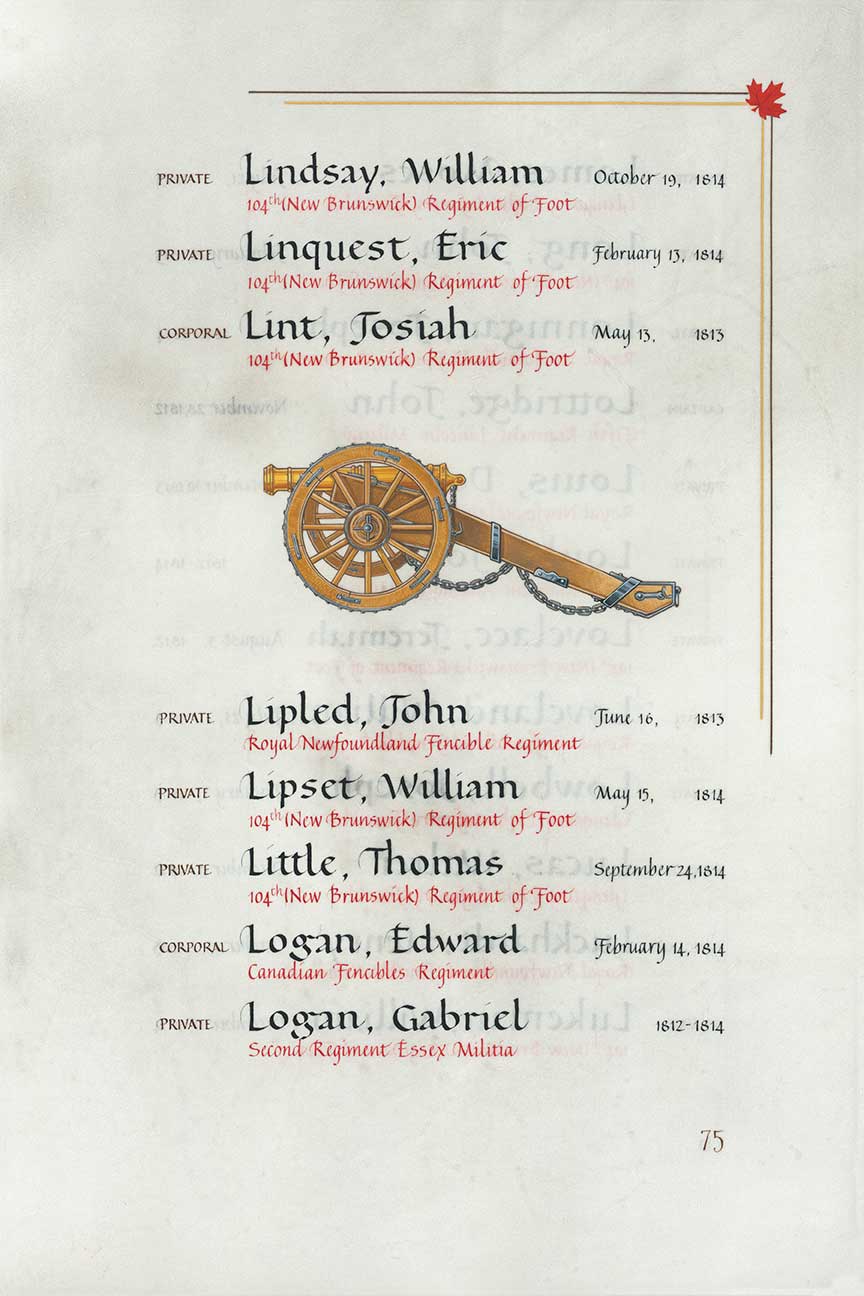 PRIVATE Lindsay, William October 19, 1814
104th (New Brunswick) Regiment of Foot
PRIVATE Linquest, Eric February 13, 1814
104th (New Brunswick) Regiment of Foot
CORPORAL Lint, Josiah May 13, 1813
104th (New Brunswick) Regiment of Foot
PRIVATE Lipled, John June 16, 1813
Royal Newfoundland Fencible Regiment
PRIVATE Lipset, William May 15, 1814
104th (New Brunswick) Regiment of Foot
PRIVATE Little, Thomas September 24, 1814
104th (New Brunswick) Regiment of Foot
CORPORAL Logan, Edward February 14, 1814
Canadian Fencibles Regiment
PRIVATE Logan, Gabriel 1812-1814
Second Regiment Essex Militia
75